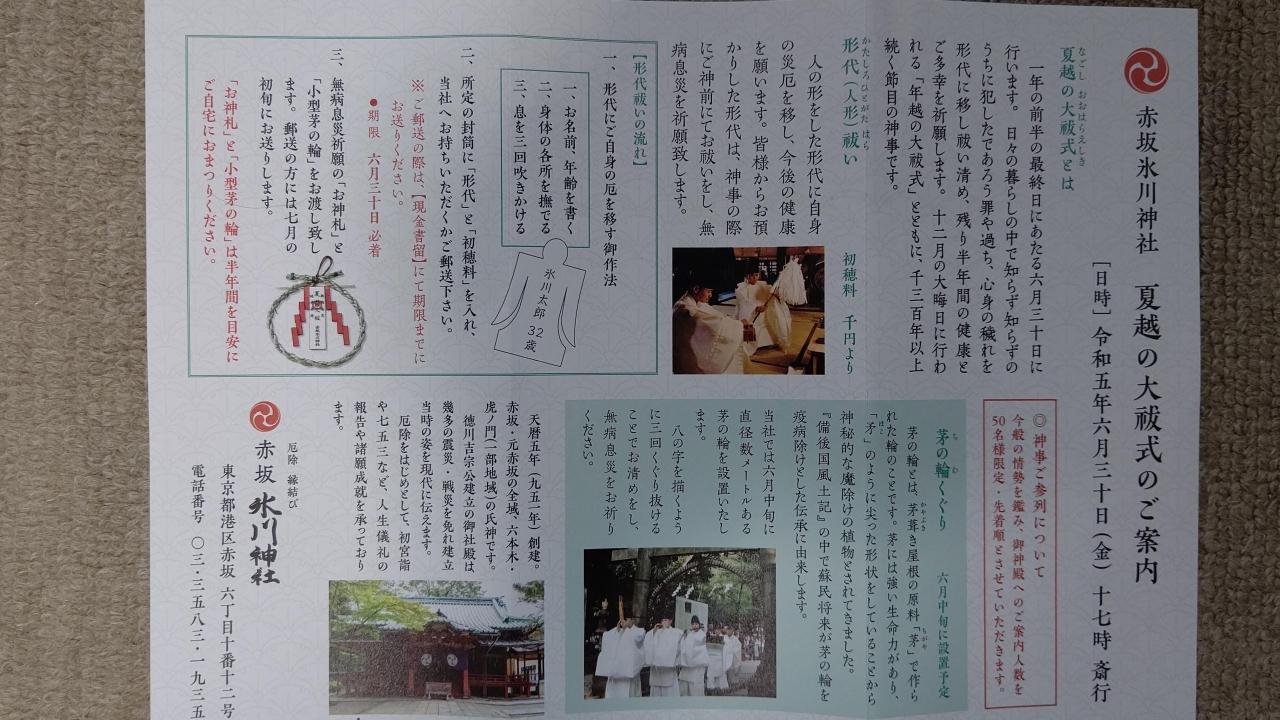 赤坂氷川神社 夏越の大祓式のご案内
[日時] 令和五年六月三十日(金) 十七時 斎行
なごし おおはらえしき
夏越の大祓式とは
一年の前半の最終日にあたる六月三十日に
行います。日々の暮らしの中で知らず知らずの
うちに犯したであろう罪や過ち、心身の穢れを
形代に移し祓い清め、残り半年間の健康と
ご多幸を祈願します。十二月の大晦日に行わ
れる「年越の大祓式」とともに、千三百年以上
続く節目の神事です。
かたしろ(ひとがた) はら
形代(人形)祓い 初穂料 千円より
人の形をした形代に自身
の災厄を移し、今後の健康
を願います。皆様からお預
かりした形代は、神事の際
にご神前にてお祓いをし、無
病息災を祈願致します。
【形代祓いの流れ】
一、形代にご自身の厄を移す御作法
一、お名前、年齢を書く
二、身体の各所を撫でる
三、息を三回吹きかける
氷川太郎 32歳
二、所定の封筒に「形代」と「初穂料」を入れ、
当社へお持ちいただくかご郵送下さい。
※ご郵送の際は、【現金書留】にて期限までに
お送りください。
●期限 六月三十日 必着
三、無病息災祈願の「お神札」と
「小型茅の輪」をお渡し致し
ます。郵送の方には七月の
初旬にお送りします。
「お神札」と「小型茅の輪」は半年間を目安に
ご自宅におまつりください。
◎神事ご参列について
今般の情勢を鑑み、御神殿へのご案内人数を
50名様限定・先着順とさせていただきます。
ち わ
茅の輪くぐり 六月中旬に設置予定
かやぶき ちがや
茅の輪とは、茅葺き屋根の原料「茅」で作ら
れた輪のことです。茅には強い生命力があり、
ほこ
「矛」のように尖った形状をしていることから
神秘的な魔除けの植物とされてきました。
『備後国風土記』の中で蘇民将来が茅の輪を
疫病除けとした伝承に由来します。
当社では六月中旬に
直径数メートルある
茅の輪を設置いたし
ます。
八の字を描くよう
に三回くぐり抜ける
ことでお清めをし、
無病息災をお祈り
ください。
天暦五年(九五一年)創建。
赤坂・元赤坂の全域、六本木・
虎ノ門(一部地域)の氏神です。
徳川吉宗公建立の御社殿は
幾多の震災・戦災を免れ建立
当時の姿を現代に伝えます。
厄除をはじめとして、初宮詣
や七五三など、人生儀礼の
報告や諸願成就を承っており
ます。
厄除 縁結び
赤坂 氷川神社
東京都港区赤坂 六丁目十番十二号
電話番号 〇三-三五八三-一九三五